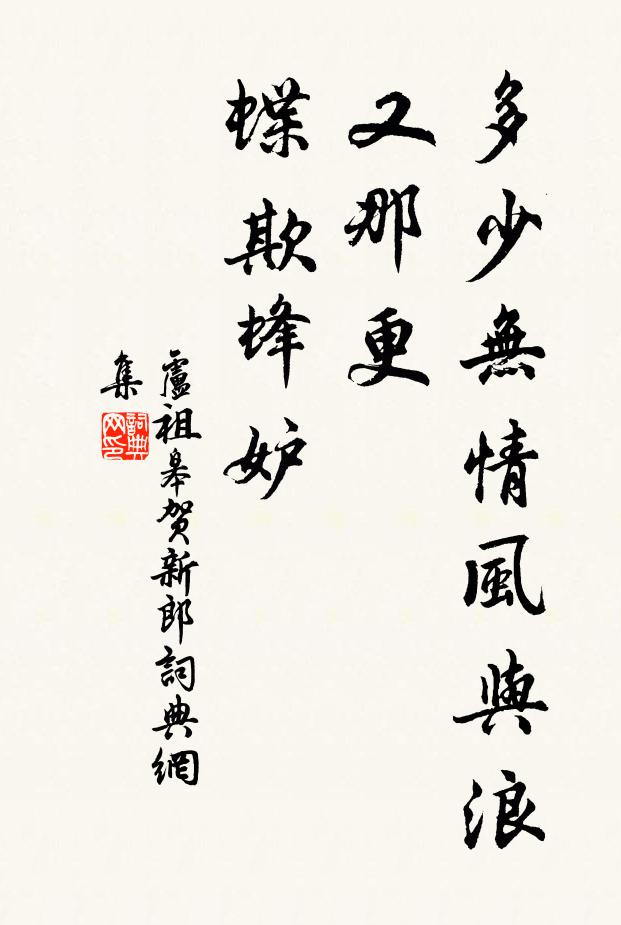 多少無情風與浪
又那更
蝶欺蜂妒
盧祖皋賀新郎詞典網
集
詞典
网印